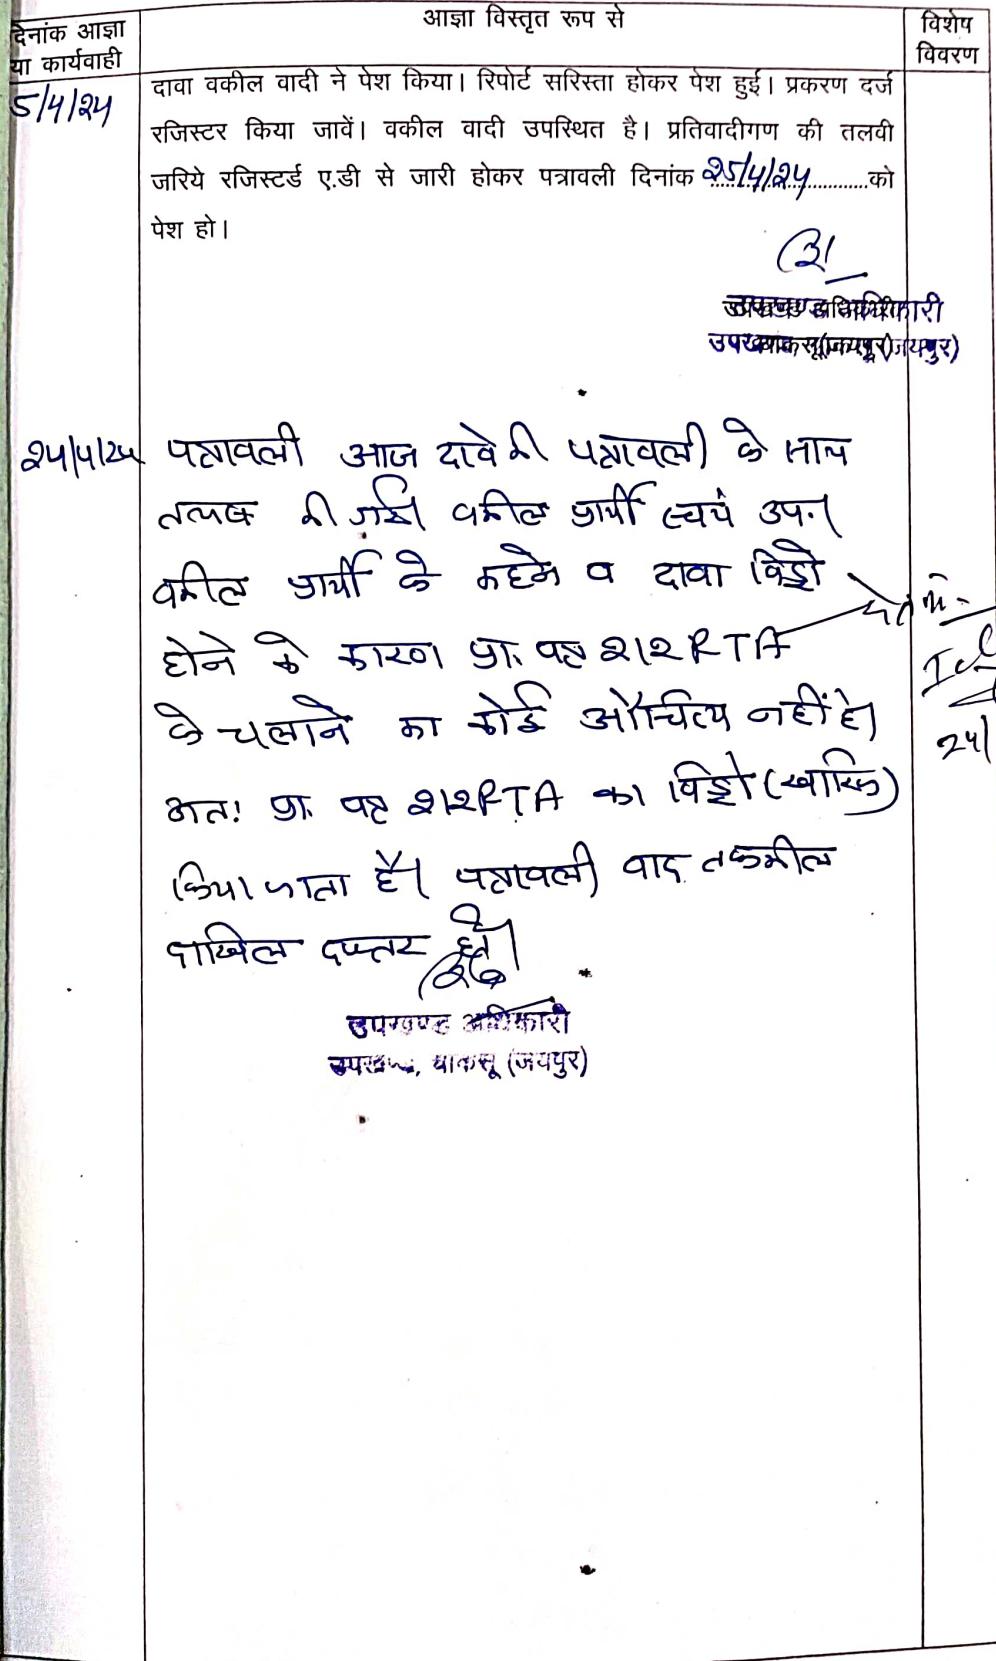 दिनांक आज्ञा
या कार्यवाही
आज्ञा विस्तृत रूप से
विशेष
विवरण
5/4/24
दावा वकील वादी ने पेश किया। रिपोर्ट सरिस्ता होकर पेश हुई। प्रकरण दर्ज
रजिस्टर किया जावें। वकील वादी उपस्थित है। प्रतिवादीगण की तलवी
जरिये रजिस्टर्ड ए.डी से जारी होकर पत्रावली दिनांक 25/4/24 को
पेश हो।
उपखण्ड अधिकारी
पत्रावली आज दावे की पत्रावली के साथ
तलब की गई। वकील प्रार्थी स्वयं उप.।
वकील प्रार्थी के कहने व दावा विड्रो
होने के कारण प्रा. पत्र 212 RTA
के चलाने का कोई औचित्य नहीं है।
अतः प्रा. पत्र 212 RTA का विड्रो (खारिज)
किया जाता है। पत्रावली बाद तकमील
दाखिल दफ्तर हो।
24/
उपखण्ड अधिकारी
उपखण्ड, चाकसू (जयपुर)